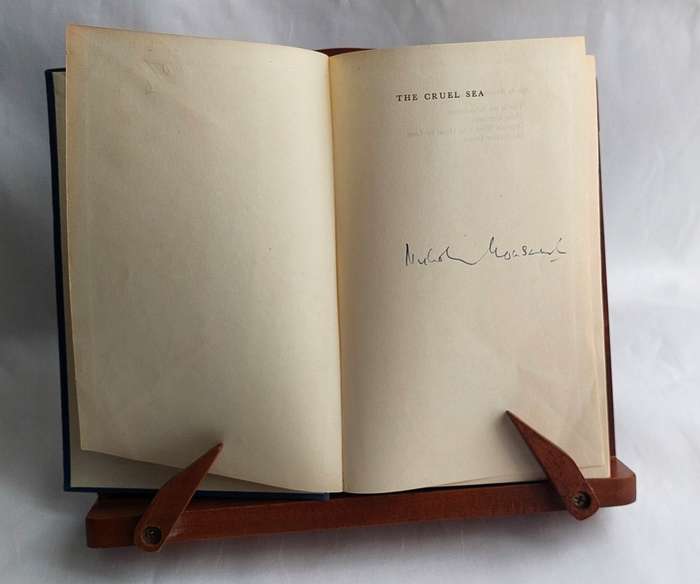 THE CRUEL SEA
Nicholas Monsarrat